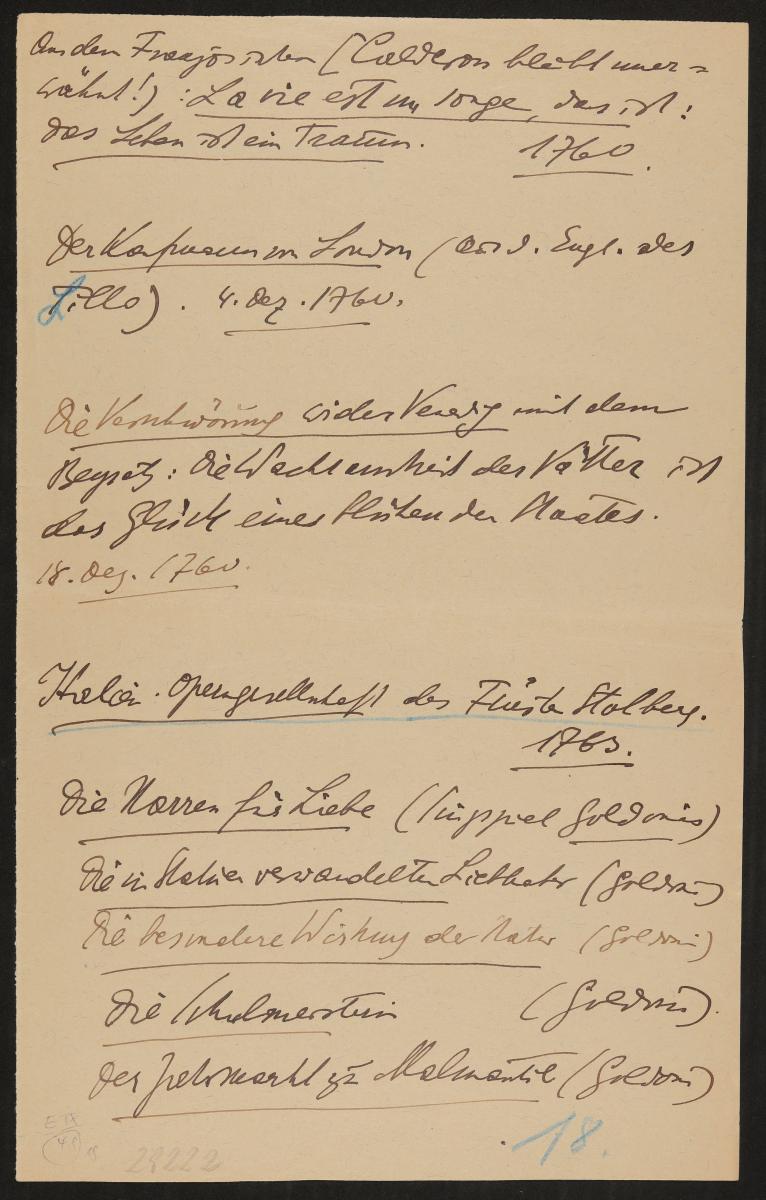 Aus dem Französischen (Calderon bleibt uner=
wähnt!) : La vie est un songe, das ist:
das Leben ist ein Traum. 1760.
Der Kaufmann von London (aus d. Engl. des
Lillo). 4. Dez. 1760.
Die Verschwörung wider Venedig mit dem
Beysatz: die Wachsamkeit der Vätter ist
das Glück eines blühenden Staates.
18. Dez. 1760.
Italien. Operngesellschaft des Fürsten Stolberg.
1763.
Die Narren für Liebe (Singspiel Goldonis)
Die in Statuen verwandelten Liebhaber (Goldoni)
Die besondere Wirkung der Natur (Goldoni)
Die Schulmeisterin (Goldoni).
Der Jahrmarkt zu Malmantile (Goldoni)
18.
E IX
48 18
29222